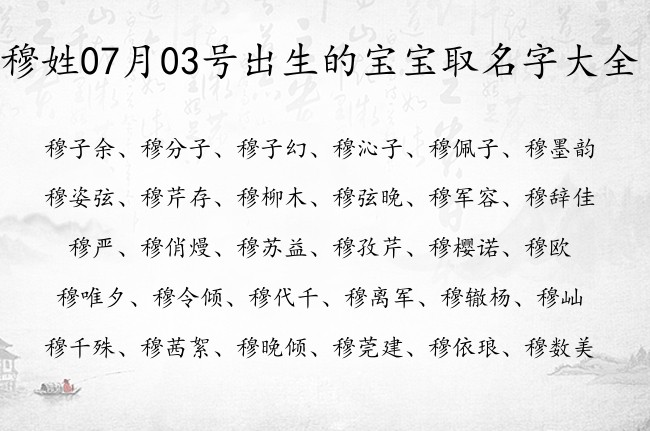 穆姓07月03号出生的宝宝取名字大全
穆子余、穆分子、穆子幻、穆沁子、穆佩子、穆墨韵
穆姿弦、穆芹存、穆柳木、穆弦晚、穆军容、穆辞佳
穆严、穆俏熳、穆苏益、穆孜芹、穆樱诺、穆欧
穆唯夕、穆令倾、穆代千、穆离军、穆辙杨、穆屾
穆千殊、穆茜絮、穆晚倾、穆莞建、穆依琅、穆数美